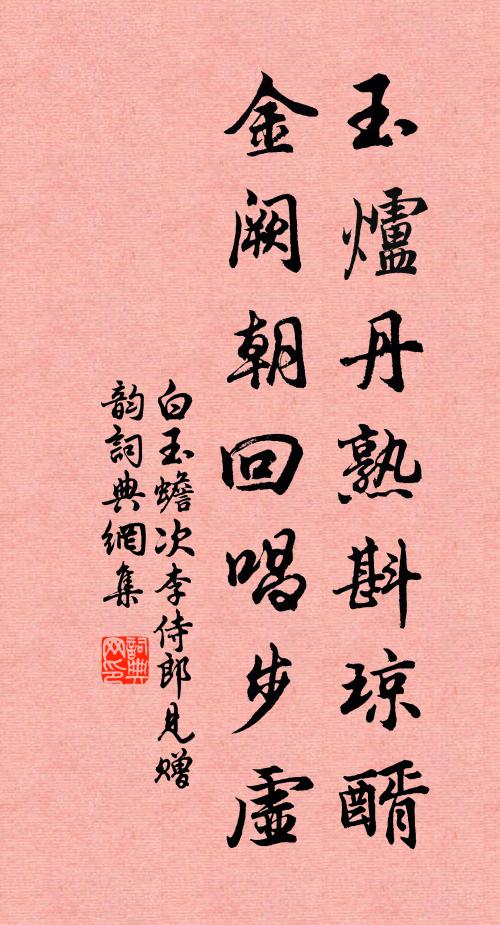 玉爐丹熟斟琼醑
金阙朝回唱步虛
白玉蟾次李侍郎見赠
韵詞典網集
詞典网印